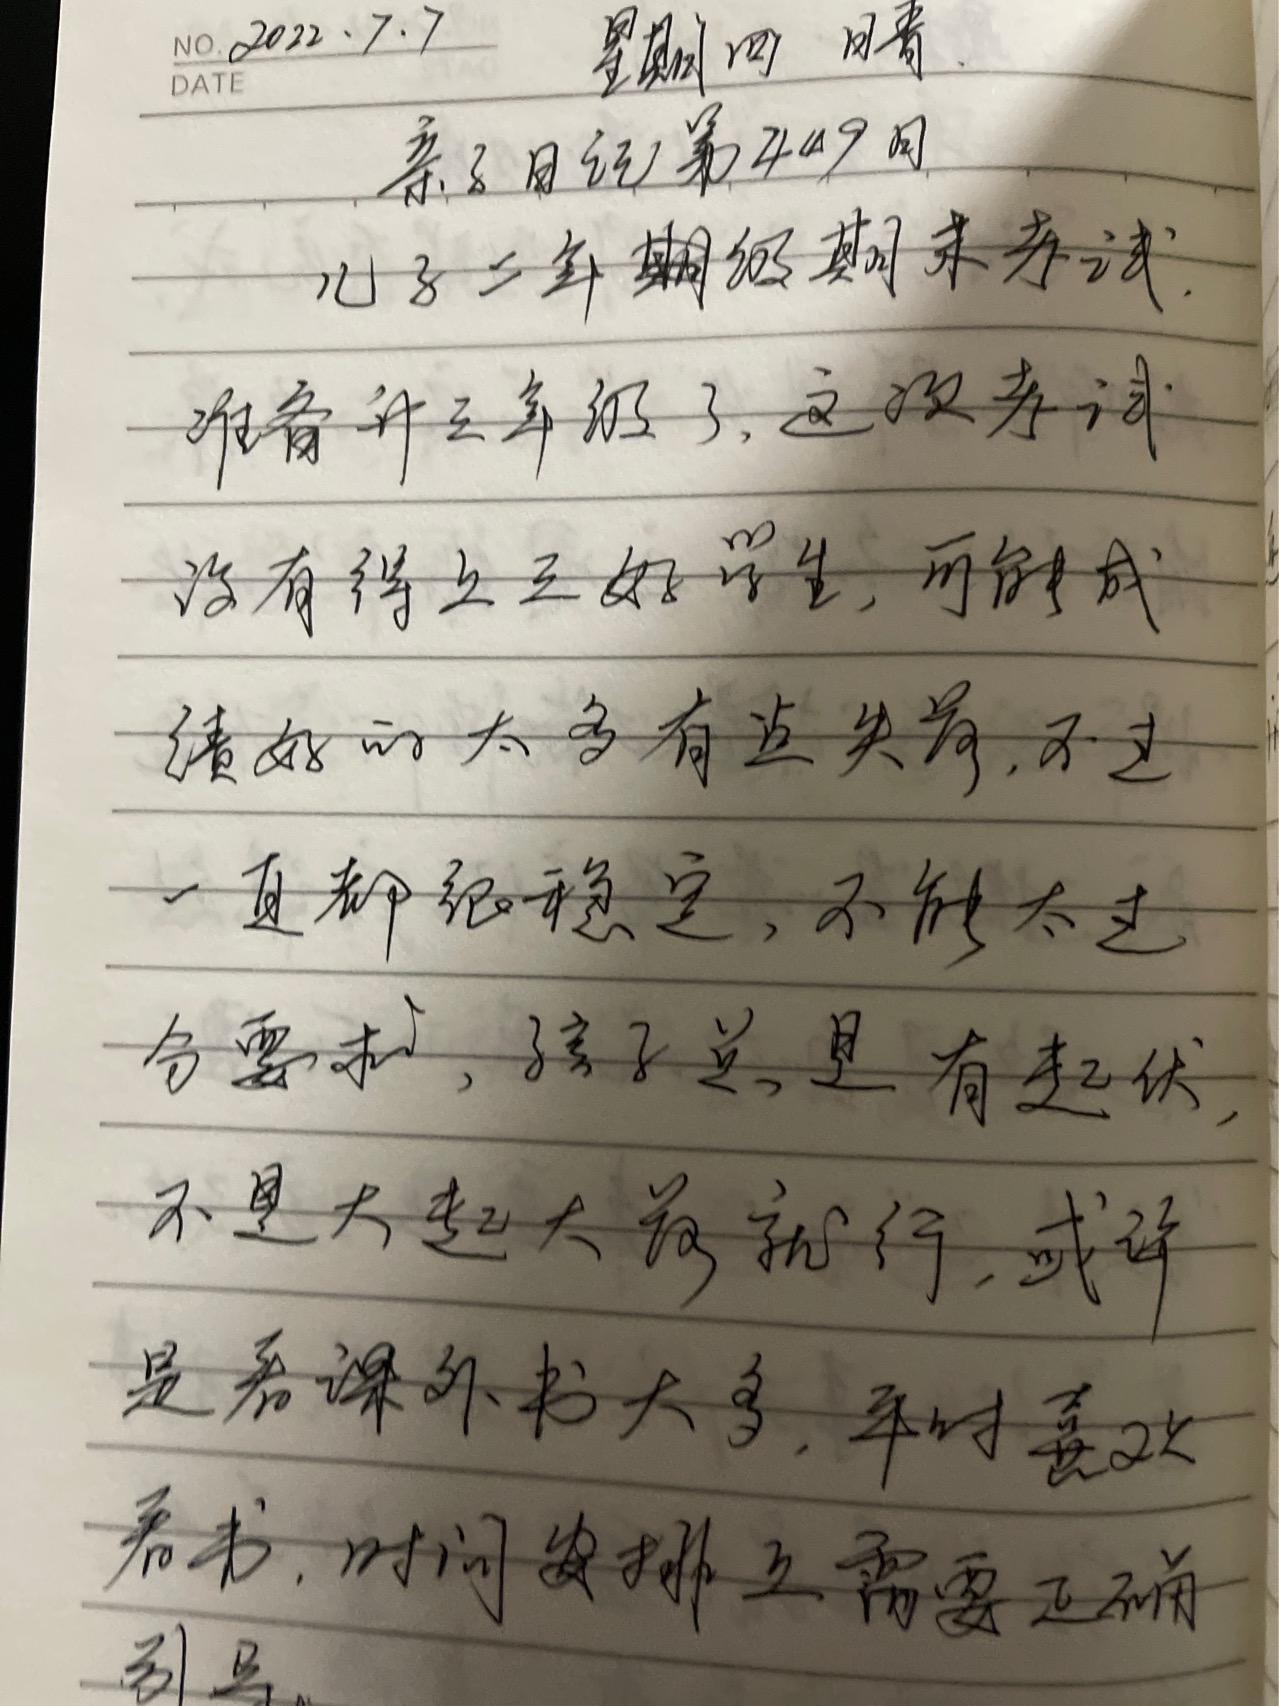 NO. 2022.7.7 星期四 晴.
DATE
亲子日记第449回
儿子二年期级期末考试.
准备升三年级了,这次考试
没有得上三好学生,可能成
绩好的太多有点失落,不过
一直都很稳定,不能太过
分要求,孩子总是有起伏,
不是大起大落就行,或许
是看课外书太多,平时喜欢
看书,时间安排上需要正确
引导。